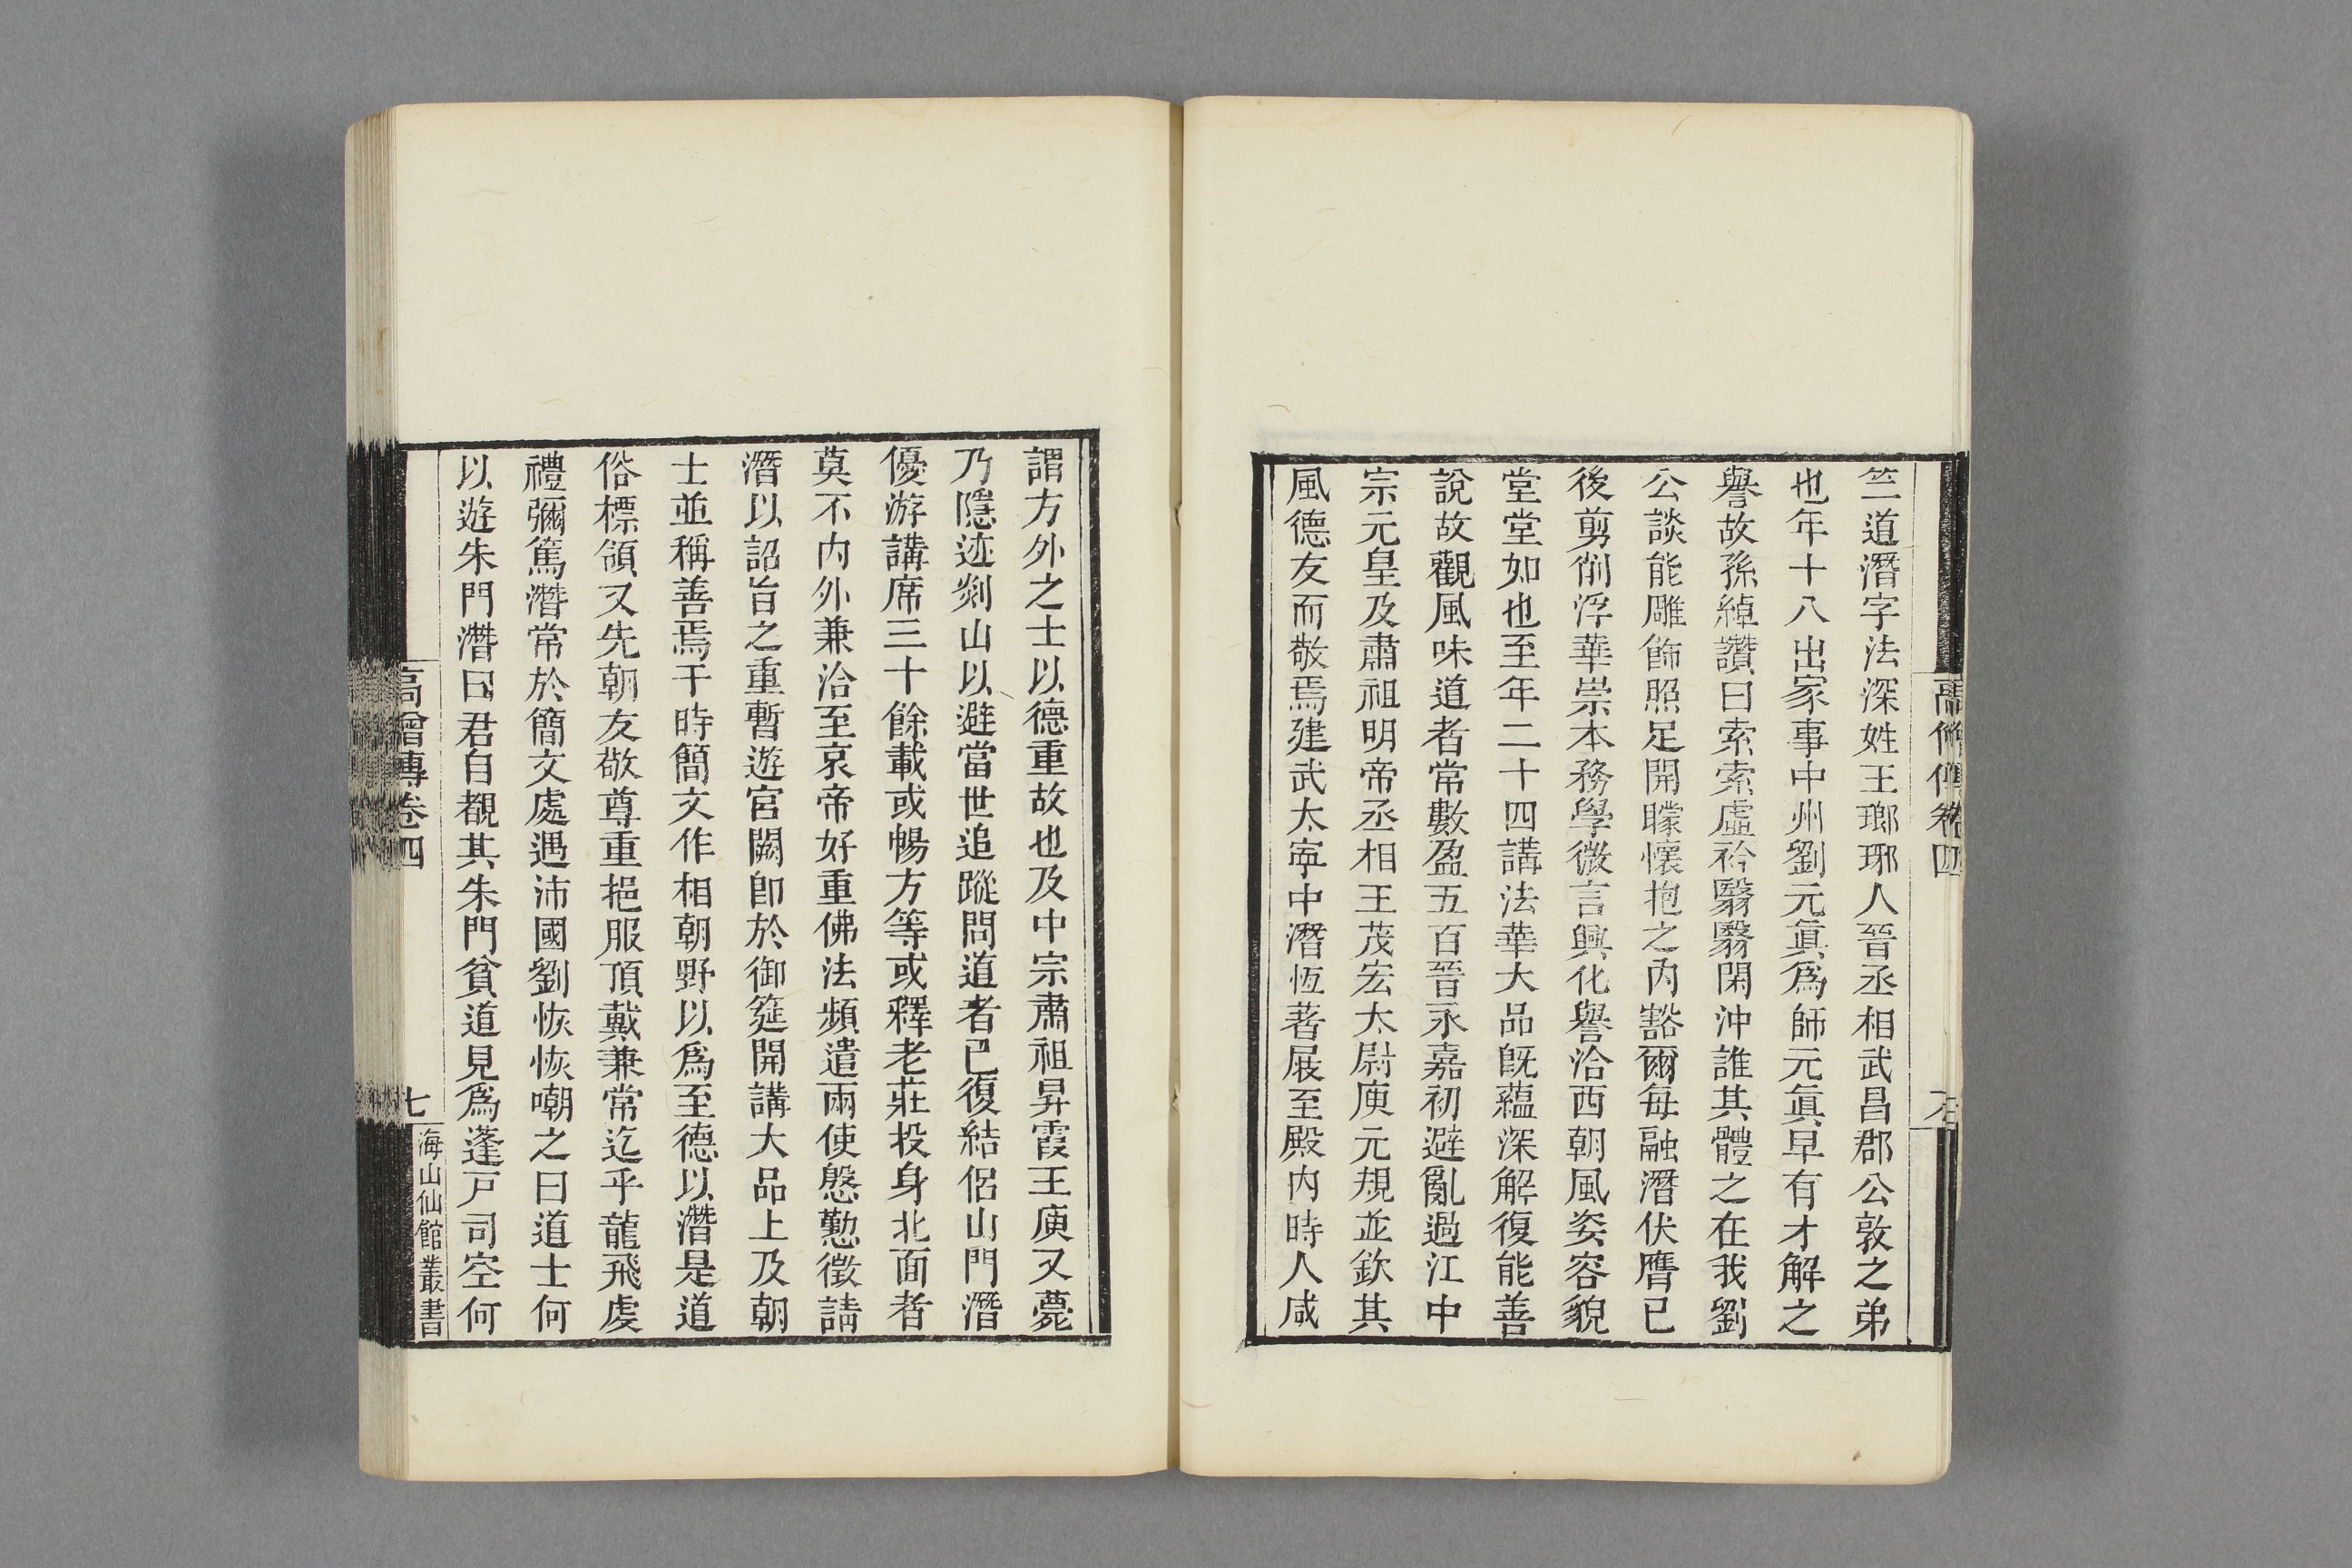 竺道潛字法深姓王瑯琊人晉丞相武昌郡公敦之弟
也年十八出家事中州劉元眞爲師元眞早有才解之
譽故孫綽讚曰索索虛衿翳翳閑沖誰其體之在我劉
公談能雕飾照足開矇懷抱之內豁爾每融潛伏膺已
後剪削浮華崇本務學微言興化譽洽西朝風姿容貌
堂堂如也至年二十四講法華大品旣蘊深解復能善
說故觀風味道者常數盈五百晉永嘉初避亂過江中
宗元皇及肅祖明帝丞相王茂宏太尉庾元規並欽其
風德友而敬焉建武太寕中潛恆著屐至殿內時人咸
謂方外之士以德重故也及中宗肅祖昇霞王庾又薨
乃隱迹剡山以避當世追蹤問道者已復結侶山門潛
優游講席三十餘載或暢方等或釋老莊投身北面者
莫不內外兼洽至哀帝好重佛法頻遣兩使慇懃徵請
潛以詔旨之重暫遊宮闕卽於御筵開講大品上及朝
士並稱善焉于時簡文作相朝野以爲至德以潛是道
俗標領又先朝友敬尊重挹服頂戴兼常迄乎龍飛虔
禮彌篤潛常於簡文處遇沛國劉恢恢嘲之曰道士何
以遊朱門潛曰君自覩其朱門貧道見爲蓬戸司空何
高僧傳卷四
七
海山仙館叢書